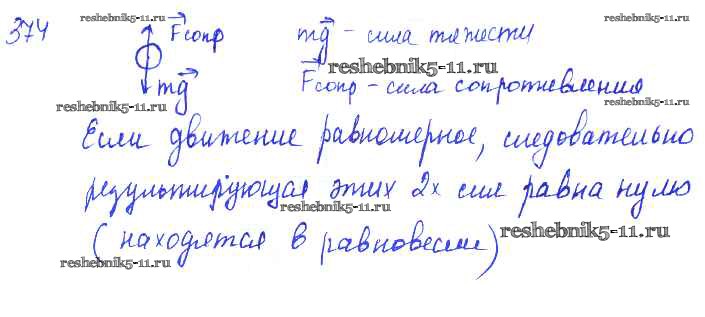 374 F сопр mg - сила тяжести
reshebnik5-11.ru reshebnik5-11.ru
reshebnik5-11.ru
mg F сопр - сила сопротивления
reshebnik5-11.ru reshebnik5-11.ru
Если движение равномерное, следовательно
результирующая этих 2х сил равна нулю
reshebnik5-11.ru reshebnik5-11.ru
(находятся в равновесии) reshebnik5-11.ru
reshebnik5-11.ru